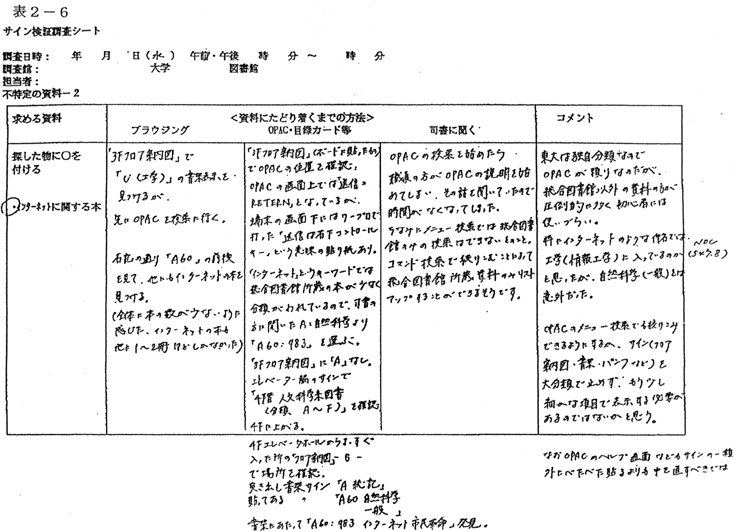 表２－６
サイン検証調査シート
調査日時： 年 月 日（水） 午前・午後 時 分 ～ 時 分
調査館： 大学 図書館
担当者：
不特定の資料－２
求める資料
＜資料にたどり着くまでの方法＞
ブラウジング
OPAC・目録カード等
司書に聞く
コメント
探した物に○を
付ける
インターネットに関する本
「3Fフロア案内図」で
「U（工学）」の書架表示を
見つけるが、
先にOPACを検索に行く。
右記の通り「A60」の前後
を見て、他にもインターネットの本を
見つける。
（全体に本の数が少ないように
感じた、インターネットの本も
他に1～2冊ほどしかなかった）
「3Fフロア案内図」（ボードに貼った物）
でOPACの位置を確認。
OPACの画面上では「送信＝
RETERN」となっているが、
端末の画面下にはワープロで
打った「送信は右下コントロール
キー」という意味の貼り紙あり。
「インターネット」というキーワードでは
総合図書館所蔵の本が少なく
分類がわれているので、司書の
方に聞いたA：自然科学より
「A60：983」を選ぶ。
「3Fフロア案内図」に「A」なし。
エレベーター脇のサインで
「4階 人文科学系図書
（分類、A～F）」を確認。
4Fに上がる。
4Fエレベータホールからまっすぐ
入った所の「フロア案内図」
－６－
で場所を確認。
突き出し書架サイン「A 総記」
貼ってある 〃 「A60 自然科学
一般」
書架にあたって「A60：983 インターネット市民革命」発見。
OPACの検索を始めたら
職員の方がOPACの説明を始
めてしまい、その話を聞いていたので
時間がなくなってしまった。
ちなみにメニュー検索では総合図書
館のみの検索はできないとのこと。
コマンド検索で絞りこむことによって
総合図書館所蔵資料のみリスト
アップすることができるそうです。
東大は独自分類なので
OPACが頼りなのだが、
総合図書館以外の資料の方が
圧倒的に多く初心者には
使いづらい。
特にインターネットのような件名では
工学（情報工学）に入っているのか
と思ったが、自然科学（一般）とは
意外だった。
NDC
OPACのメニュー検索でも絞りこみ
できるようにするか、サイン（フロア
案内図・書架・パンフなど）を
大分類で止めず、もう少し
細かな項目で表示する必要が
あるのではないかと思う。
なおOPACのヘルプ画面などもサインの一種
外にべたべた貼るよりも中を直すべきでは